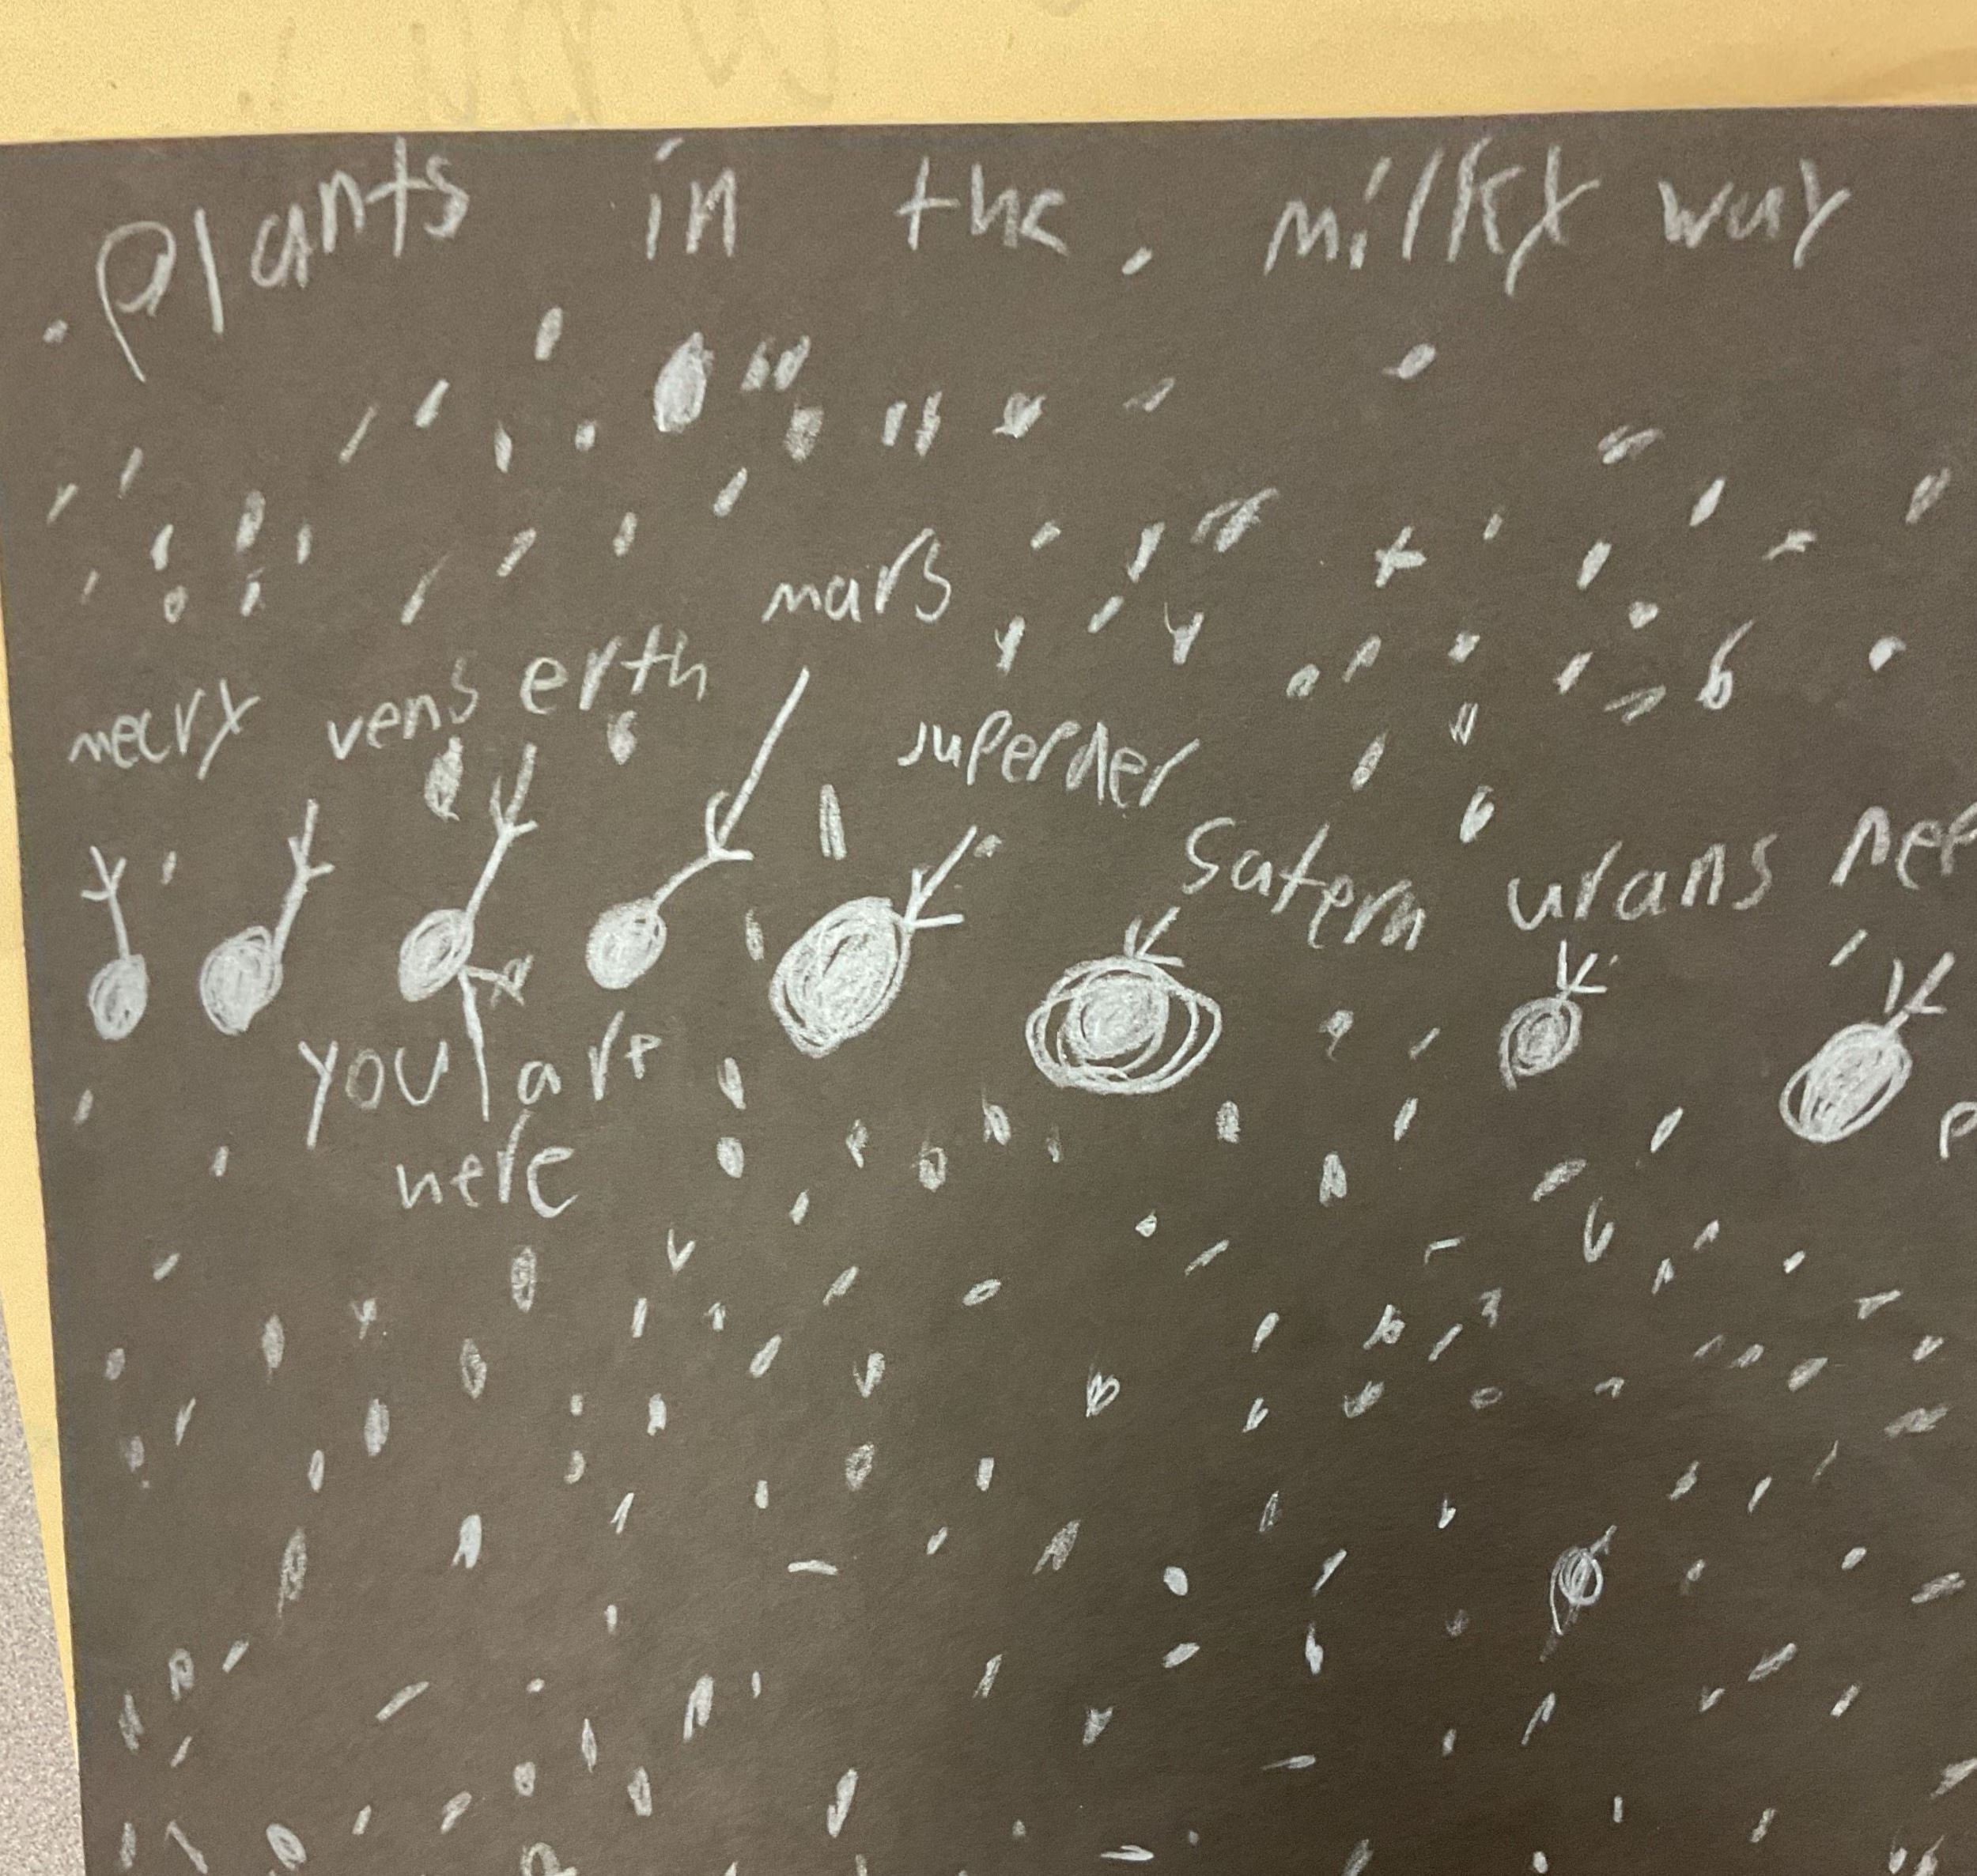 plants in the milky way
mars
mecry vens erth
superder
Satern urans nep
you are
here
p